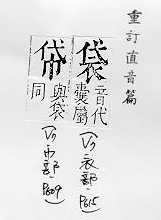 重訂直音篇
袋 音代囊屬
(V5衣部·P215)
帒 與袋同
(V5巾部·P209)